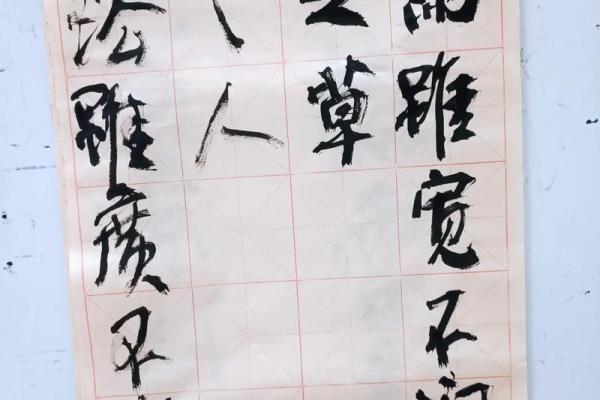 雨雖宽不润
之草
法雖廣不
人